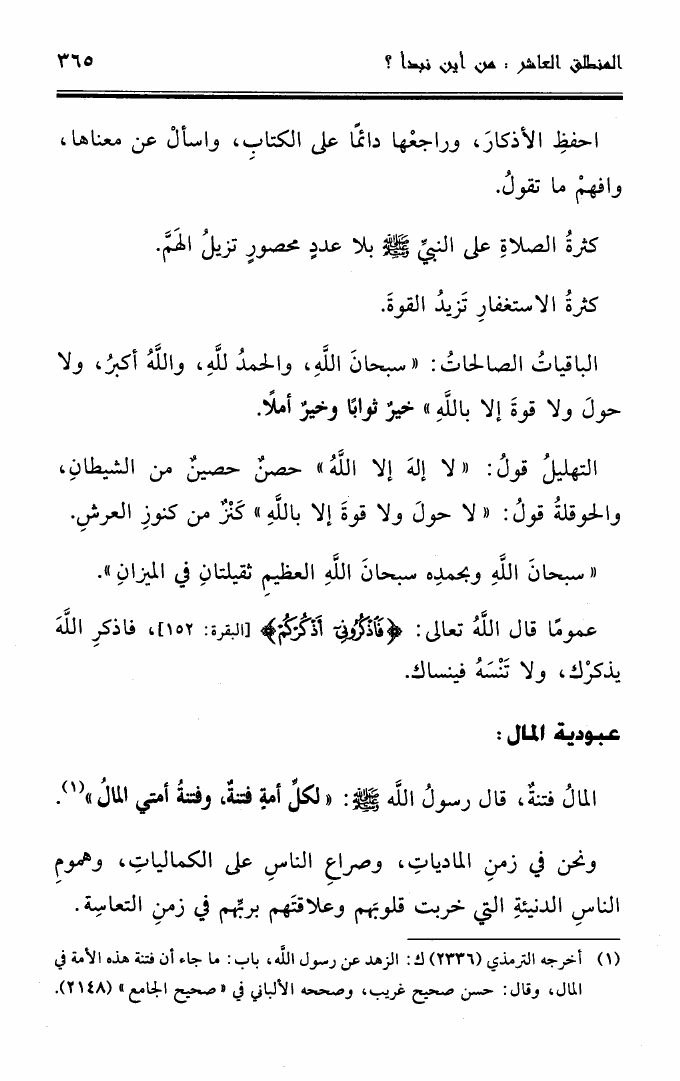 المنطلق العاشر : من أين نبدأ ؟ ٣٦٥
احفظِ الأذكارَ، وراجعْها دائمًا على الكتابِ، واسألْ عن معناها،
وافهمْ ما تقولُ.
كثرةُ الصلاةِ على النبيِّ ﷺ بلا عددٍ محصورٍ تزيلُ الهَمَّ.
كثرةُ الاستغفارِ تَزيدُ القوةَ.
الباقياتُ الصالحاتُ: «سبحانَ اللَّهِ، والحمدُ للَّهِ، واللَّهُ أكبرُ، ولا
حولَ ولا قوةَ إلا باللَّهِ» خيرٌ ثوابًا وخيرٌ أملًا.
التهليلُ قولُ: «لا إلهَ إلا اللَّهُ» حصنٌ حصينٌ من الشيطانِ،
والحوقلةُ قولُ: «لا حولَ ولا قوةَ إلا باللَّهِ» كَنْزٌ من كنوزِ العرشِ.
«سبحانَ اللَّهِ وبحمدِه سبحانَ اللَّهِ العظيمِ ثقيلتانِ في الميزانِ».
عمومًا قال اللَّهُ تعالى: ﴿فَاذْكُرُونِي أَذْكُرْكُمْ﴾ [البقرة: ١٥٢]، فاذكرِ اللَّهَ
يذكرْك، ولا تَنْسَهُ فينساك.
عبودية المال :
المالُ فتنةٌ، قال رسولُ اللَّه ﷺ: «لكلِّ أمةٍ فتنةٌ، وفتنةُ أمتي المالُ»(١).
ونحن في زمنِ المادياتِ، وصراعِ الناسِ على الكمالياتِ، وهمومِ
الناسِ الدنيئةِ التي خربت قلوبَهم وعلاقتَهم بربِّهم في زمنِ التعاسةِ.
(١) أخرجه الترمذي (٢٣٣٦) ك: الزهد عن رسول اللَّه، باب: ما جاء أن فتنة هذه الأمة في
المال، وقال: حسن صحيح غريب، وصححه الألباني في «صحيح الجامع» (٢١٤٨).